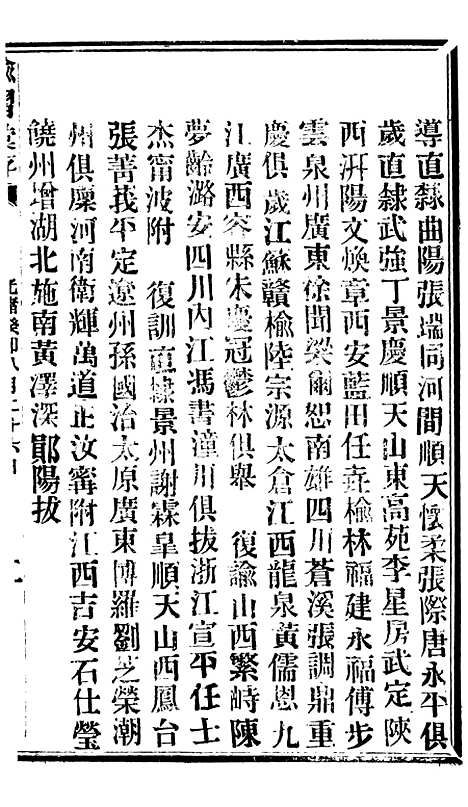 導直隸曲陽張瑞同河間順天懷柔張際唐永平俱
歲直隸武強丁景慶順天山東高苑李星房武定陝
西汧陽文煥章西安藍田任垚榆林福建永福傅步
雲泉州廣東徐聞梁爾恕南雄四川蒼溪張調鼎重
慶俱 歲江蘇贛榆陸宗源太倉江西龍泉黃儒恩九
江廣西容縣朱慶冠鬱林俱舉 復諭山西繁峙陳
夢齡潞安四川內江馮書潼川俱拔浙江宣平任士
杰甯波附 復訓直隸景州謝霖皐順天山西鳳台
張菁莪平定遼州孫國治太原廣東博羅劉芝榮潮
州俱廩河南衛輝萬道正汝甯附江西吉安石仕瑩
饒州增湖北施南黃澤深鄖陽拔
光緒癸卯八月二十六日